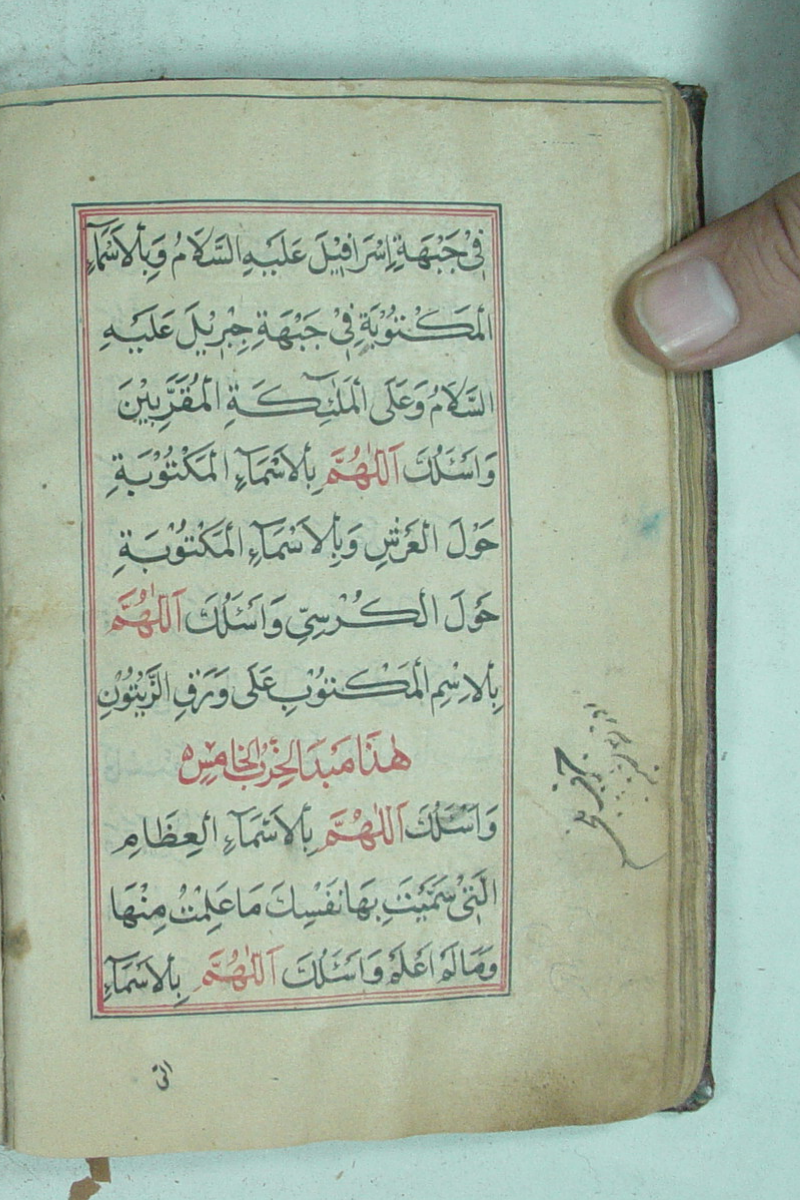 فِيْ جَبْهَةِ اِسْرَافِيْلَ عَلَيْهِ السَّلَامُ وَبِالْاَسْمَآءِ
الْمَكْتُوْبَةِ فِيْ جَبْهَةِ جِبْرِيْلَ عَلَيْهِ
السَّلَامُ وَعَلَى الْمَلٰٓئِكَةِ الْمُقَرَّبِيْنَ
وَاَسْئَلُكَ اَللّٰهُمَّ بِالْاَسْمَآءِ الْمَكْتُوْبَةِ
حَوْلَ الْعَرْشِ وَبِالْاَسْمَآءِ الْمَكْتُوْبَةِ
حَوْلَ الْكُرْسِيِّ وَاَسْئَلُكَ اَللّٰهُمَّ
بِالْاِسْمِ الْمَكْتُوْبِ عَلَى وَرَقِ الزَّيْتُوْنِ
هٰذَا مَبْدَا الْحِزْبِ الْخَامِسِ
وَاَسْئَلُكَ اَللّٰهُمَّ بِالْاَسْمَآءِ الْعِظَامِ
الَّتِيْ سَمَّيْتَ بِهَا نَفْسِكَ مَا عَلِمْتُ مِنْهَا
وَمَا لَمْ اَعْلَمْ وَاَسْئَلُكَ اَللّٰهُمَّ بِالْاَسْمَآءِ
التى